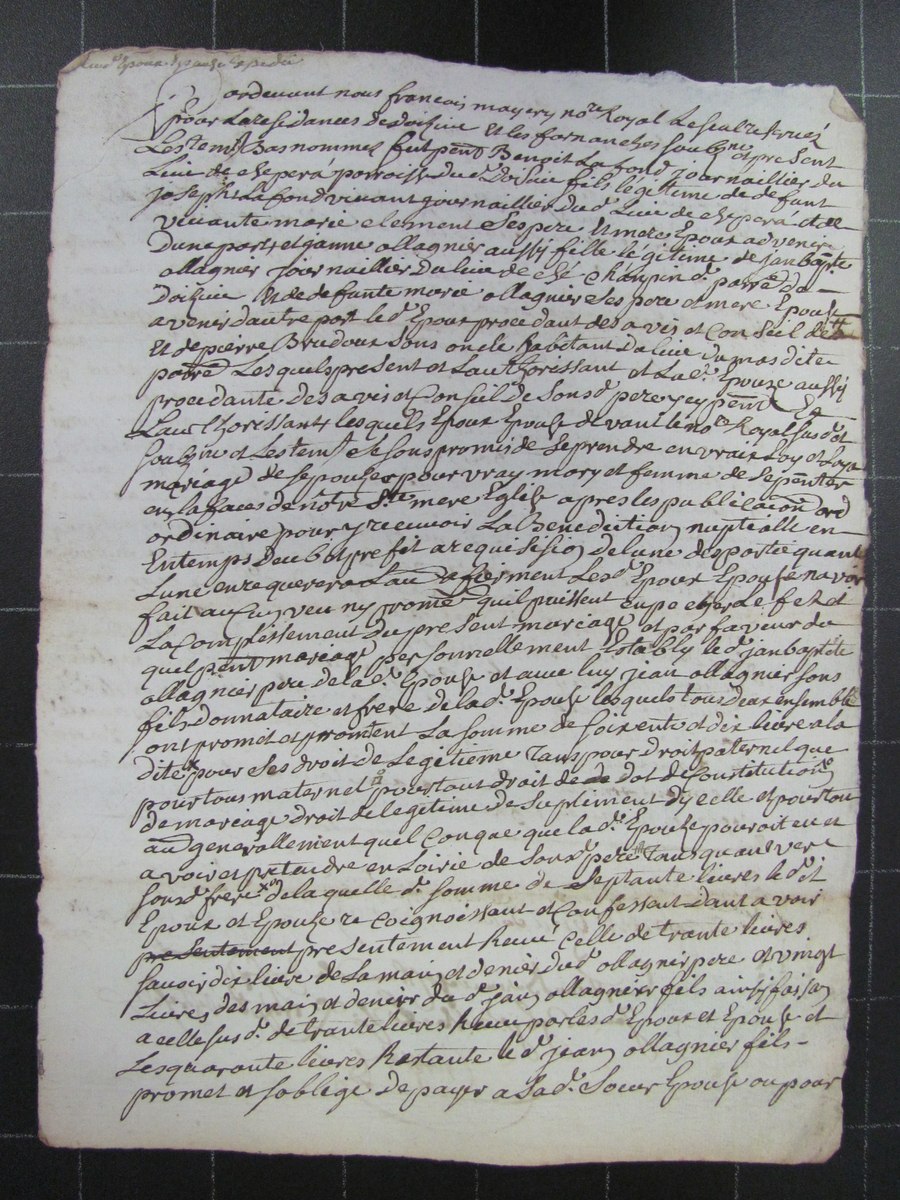 Epoux Epouze Expedié
ordevant nous francois mayery no.re Royal Le seul reservé
pour La residances de doizieu Et les farnanches soubz.ne et present
Les tem.s Bas nommes fut p.ent Benoit La fond journaillier du
Lieu de cheperà parroisse du.d doizieu fils légitieme de defunt
joseph La fond vivant journaillier du.d Lieu de cheperà et de
vivante marie clement Ses pere Et mere Epoux advenir
dune part, et janne ollagnier aussy fille légitieme de jan bapte
ollagnier journaillier du lieu de ché Chanpin d. parre de
doizieu Et de defunte marie ollagnier Ses pere et mere Epouze
avenir dautre part le d. Epoux procedant des avis et Conseil
Et de pierre Brudoux Sons oncle habitant du lieu du mas dite
parre Lesquels present et Lauthoressant et La d. Epouze aussy
procedante des avis et Conseil de Son d. pere ycy p.ent Et
Lauthoressant lesquels Epoux Epouze devant le no.re Royal sus d. et
soubz.ne et Les tem.s Se Sons promis de Se prendre en vraix Loy et Loyal
mariage de Sepouzer pour vray mary et femme de Se p.enter
en la faces de notre S.te mere Eglize apres les publications ord
ordinaire pour y recevoir La Benediction nuptialle en
Entemps deub et prefit a requisision de lune des partie quant
Lune en requerera Lau affierment Les d. Epoux Epouze navoir
fait aucun veu ny promê quil puissent enpecher Le fezt et
La Complissement du present mareage et par faveur du
quel p.ent mareage personnellement Estably le d. jan baptiste
ollagnier pere de la d. Epouze et avec luy jean ollagnier sons
fils donnataire et frere de la d. Epouze lesquels tous deux ensemble
ont promet et promtent La somme de soixente et dix livre a la
dite pour Ses droit de Legitieme Tans pour droit paternel que
pour tous maternel pour tout droit de dot de Constitution
de mareage droit de legitieme de Supliment dycelle et pour tou
au generallement quel Conque que la d. Epouze pouroit en et
avoir et pretendre en Loirie de Son d. pere Tans quanvers
Son d. frere de la quelle d. somme de Septante livres le d.it
Epoux et Epouze re Coignoissant et Confessent dant avoir
presentement presentement Receu Celle de trante livres
savoir dix livre de La main et denier du d. ollagnier pere et vingt
Livres des main et denier du d. jean ollagnier fils ainsy faisan
a celle sus d. de trante livres Receu par les d. Epoux et Epouze et
Les quarante livres Restante le d. jean ollagnier fils -
promet et soblige de payer a La d. Soeur Epouze ou pour